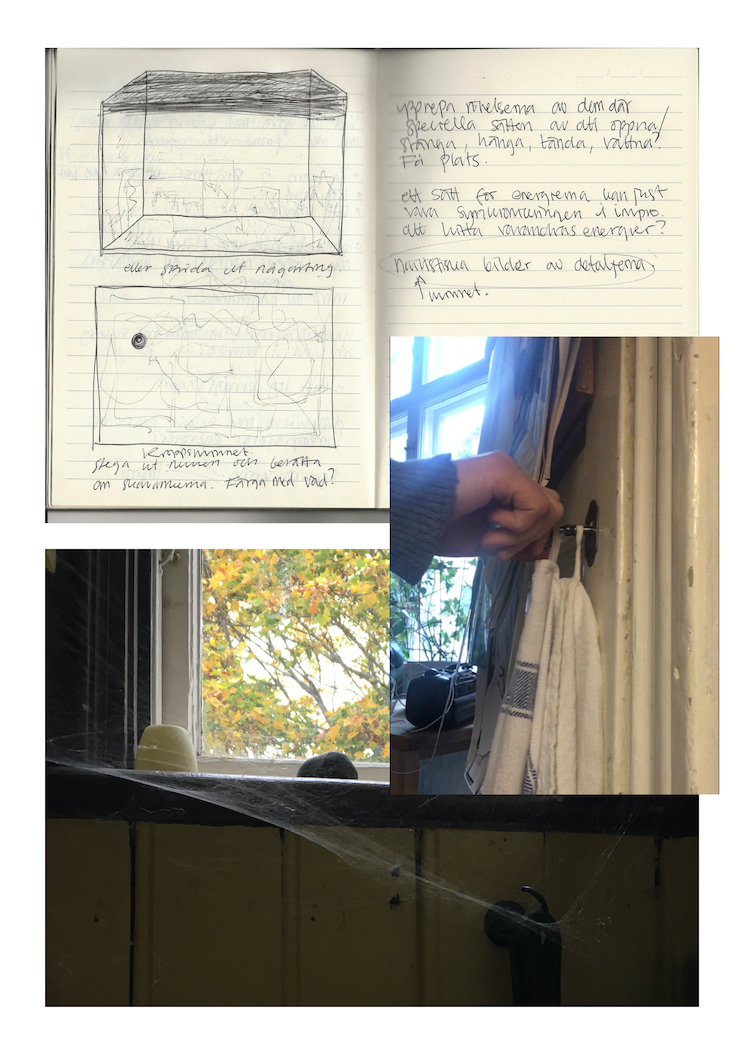 eller sprida ut någonting
Kroppsminnet
stega ut minnen och berätta
om människorna. Färga med vad?
upprepa rörelserna av dem där
speciella sätten av att öppna/
stänga, hänga, tända, vattna?
Få plats.
ett sätt för energierna kan just
vara synkroniseringen i impro.
att hitta varandras energier?
naivistiska bilder av detaljerna
minnet.